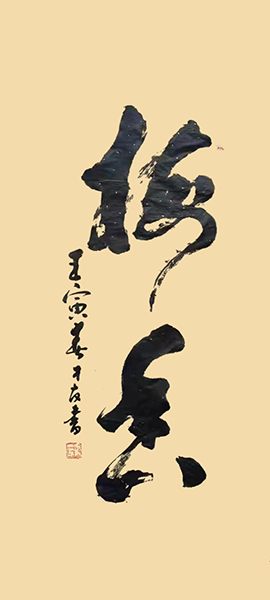 梅香
壬寅春才友書